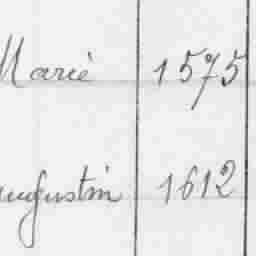 Marie 1575
augustin 1612